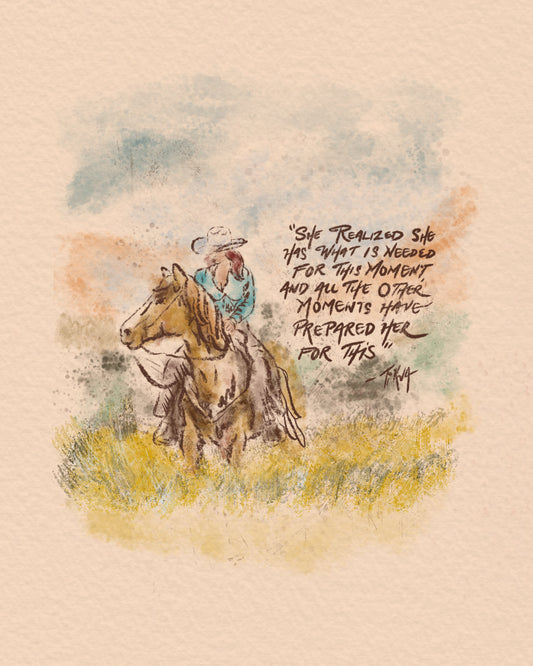 "She Realized She
Has What is Needed
For This Moment
And All The Other
Moments Have
Prepared Her
For This"